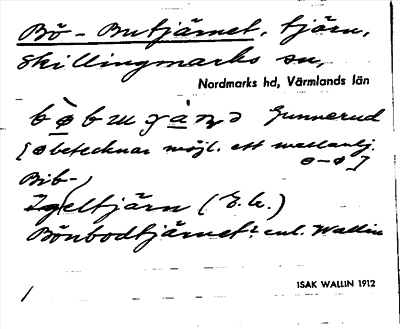 Bö-Butjärnet, tjärn,
Skillingmarks sn,
Nordmarks hd, Värmlands län
Gunnerud
[ø betecknar möjl. ett mellanlj.
o-ø]
Bib-
Igeltjärn (E.k.)
Bönbodtjärnet? enl. Wallin
ISAK WALLIN 1912
/